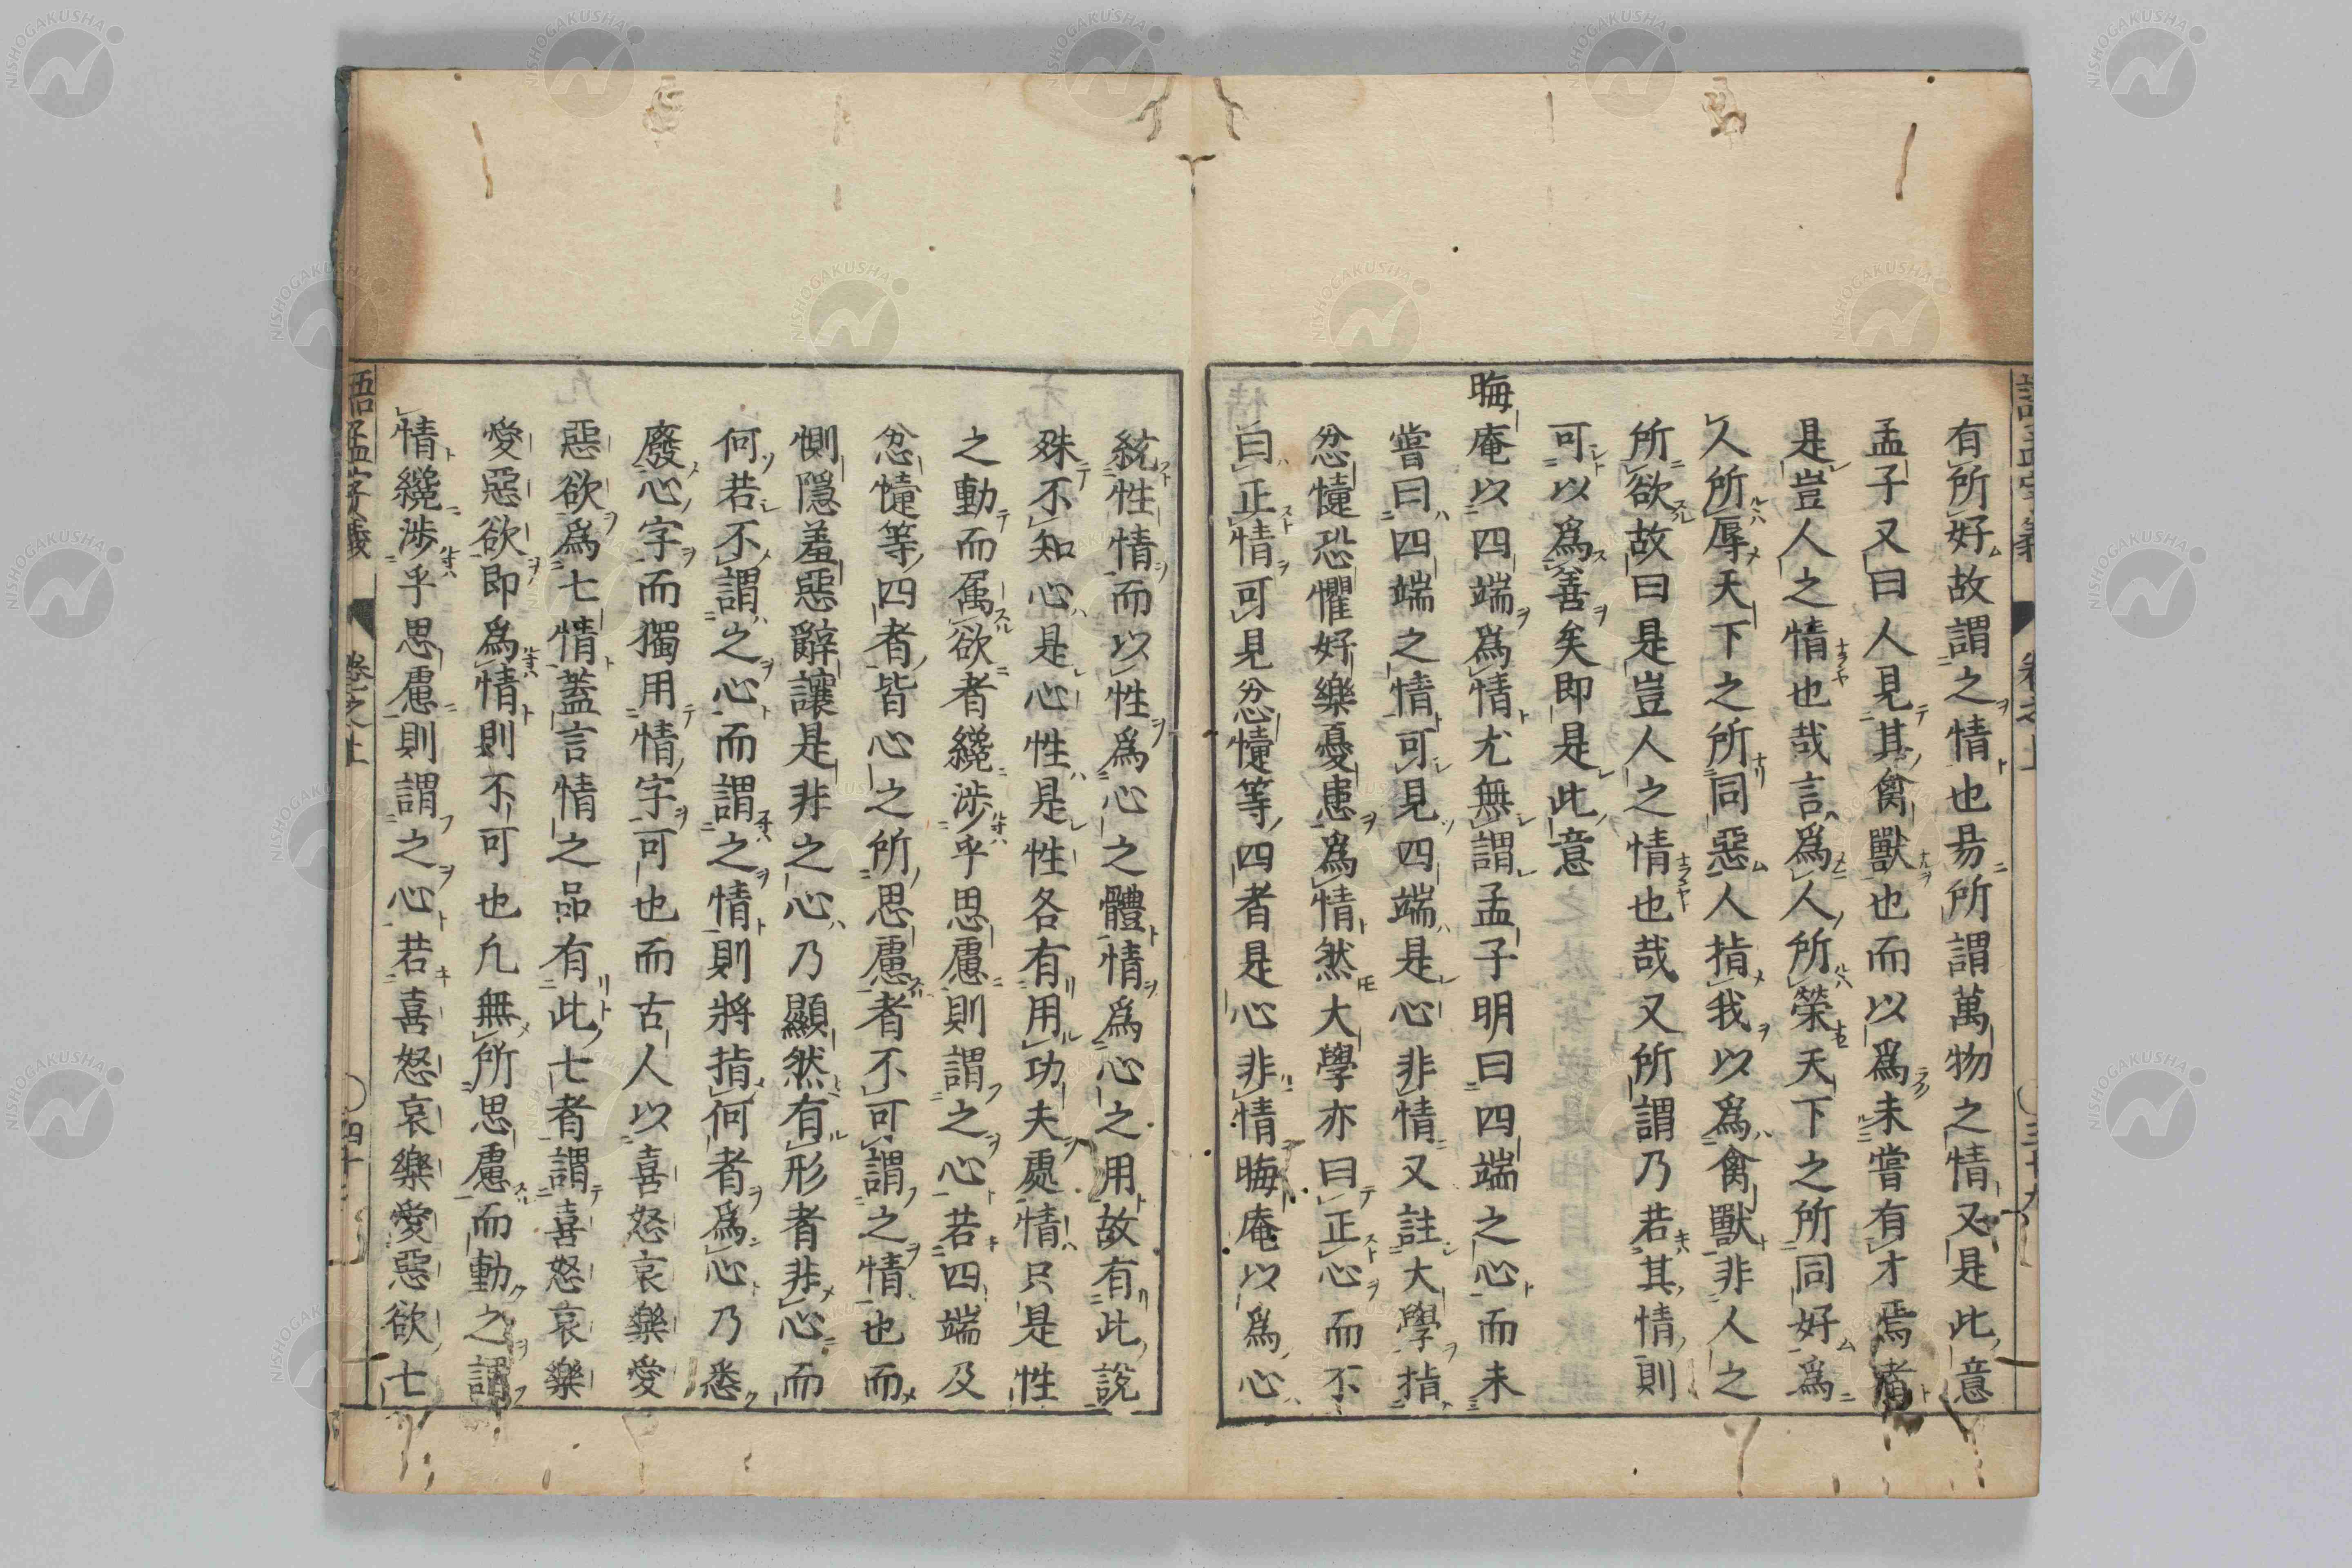 有所好故謂之情也易所謂萬物之情又是此意
孟子又曰人見其禽獸也而以爲未嘗有才焉者
是豈人之情也哉言爲人所榮天下之所同好爲
人所辱天下之所同惡人指我以爲禽獸非人之
所欲故曰是豈人之情也哉又所謂乃若其情則
可以爲善矣即是此意
晦庵以四端爲情尤無謂孟子明曰四端之心而未
嘗曰四端之情可見四端是心非情又註大學指
忿懥恐懼好樂憂患爲情然大學亦曰正心而不
曰正情可見忿懥等四者是心非情晦庵以爲心
統性情而以性爲心之體情爲心之用故有此說
殊不知心是心性是性各有用功夫處情只是性
之動而属欲者纔涉乎思慮則謂之心若四端及
忿懥等四者皆心之所思慮者不可謂之情也而
惻隠羞惡辭讓是非之心乃顯然有形者非心而
何若不謂之心而謂之情則將指何者爲心乃悉
廢心字而獨用情字可也而古人以喜怒哀樂愛
惡欲爲七情蓋言情之品有此七者謂喜怒哀樂
愛惡欲即爲情則不可也凢無所思慮而動之謂
情纔涉乎思慮則謂之心若喜怒哀樂愛惡欲七
語孟字義 卷之上 〇四十
NISHOGAKUSHA